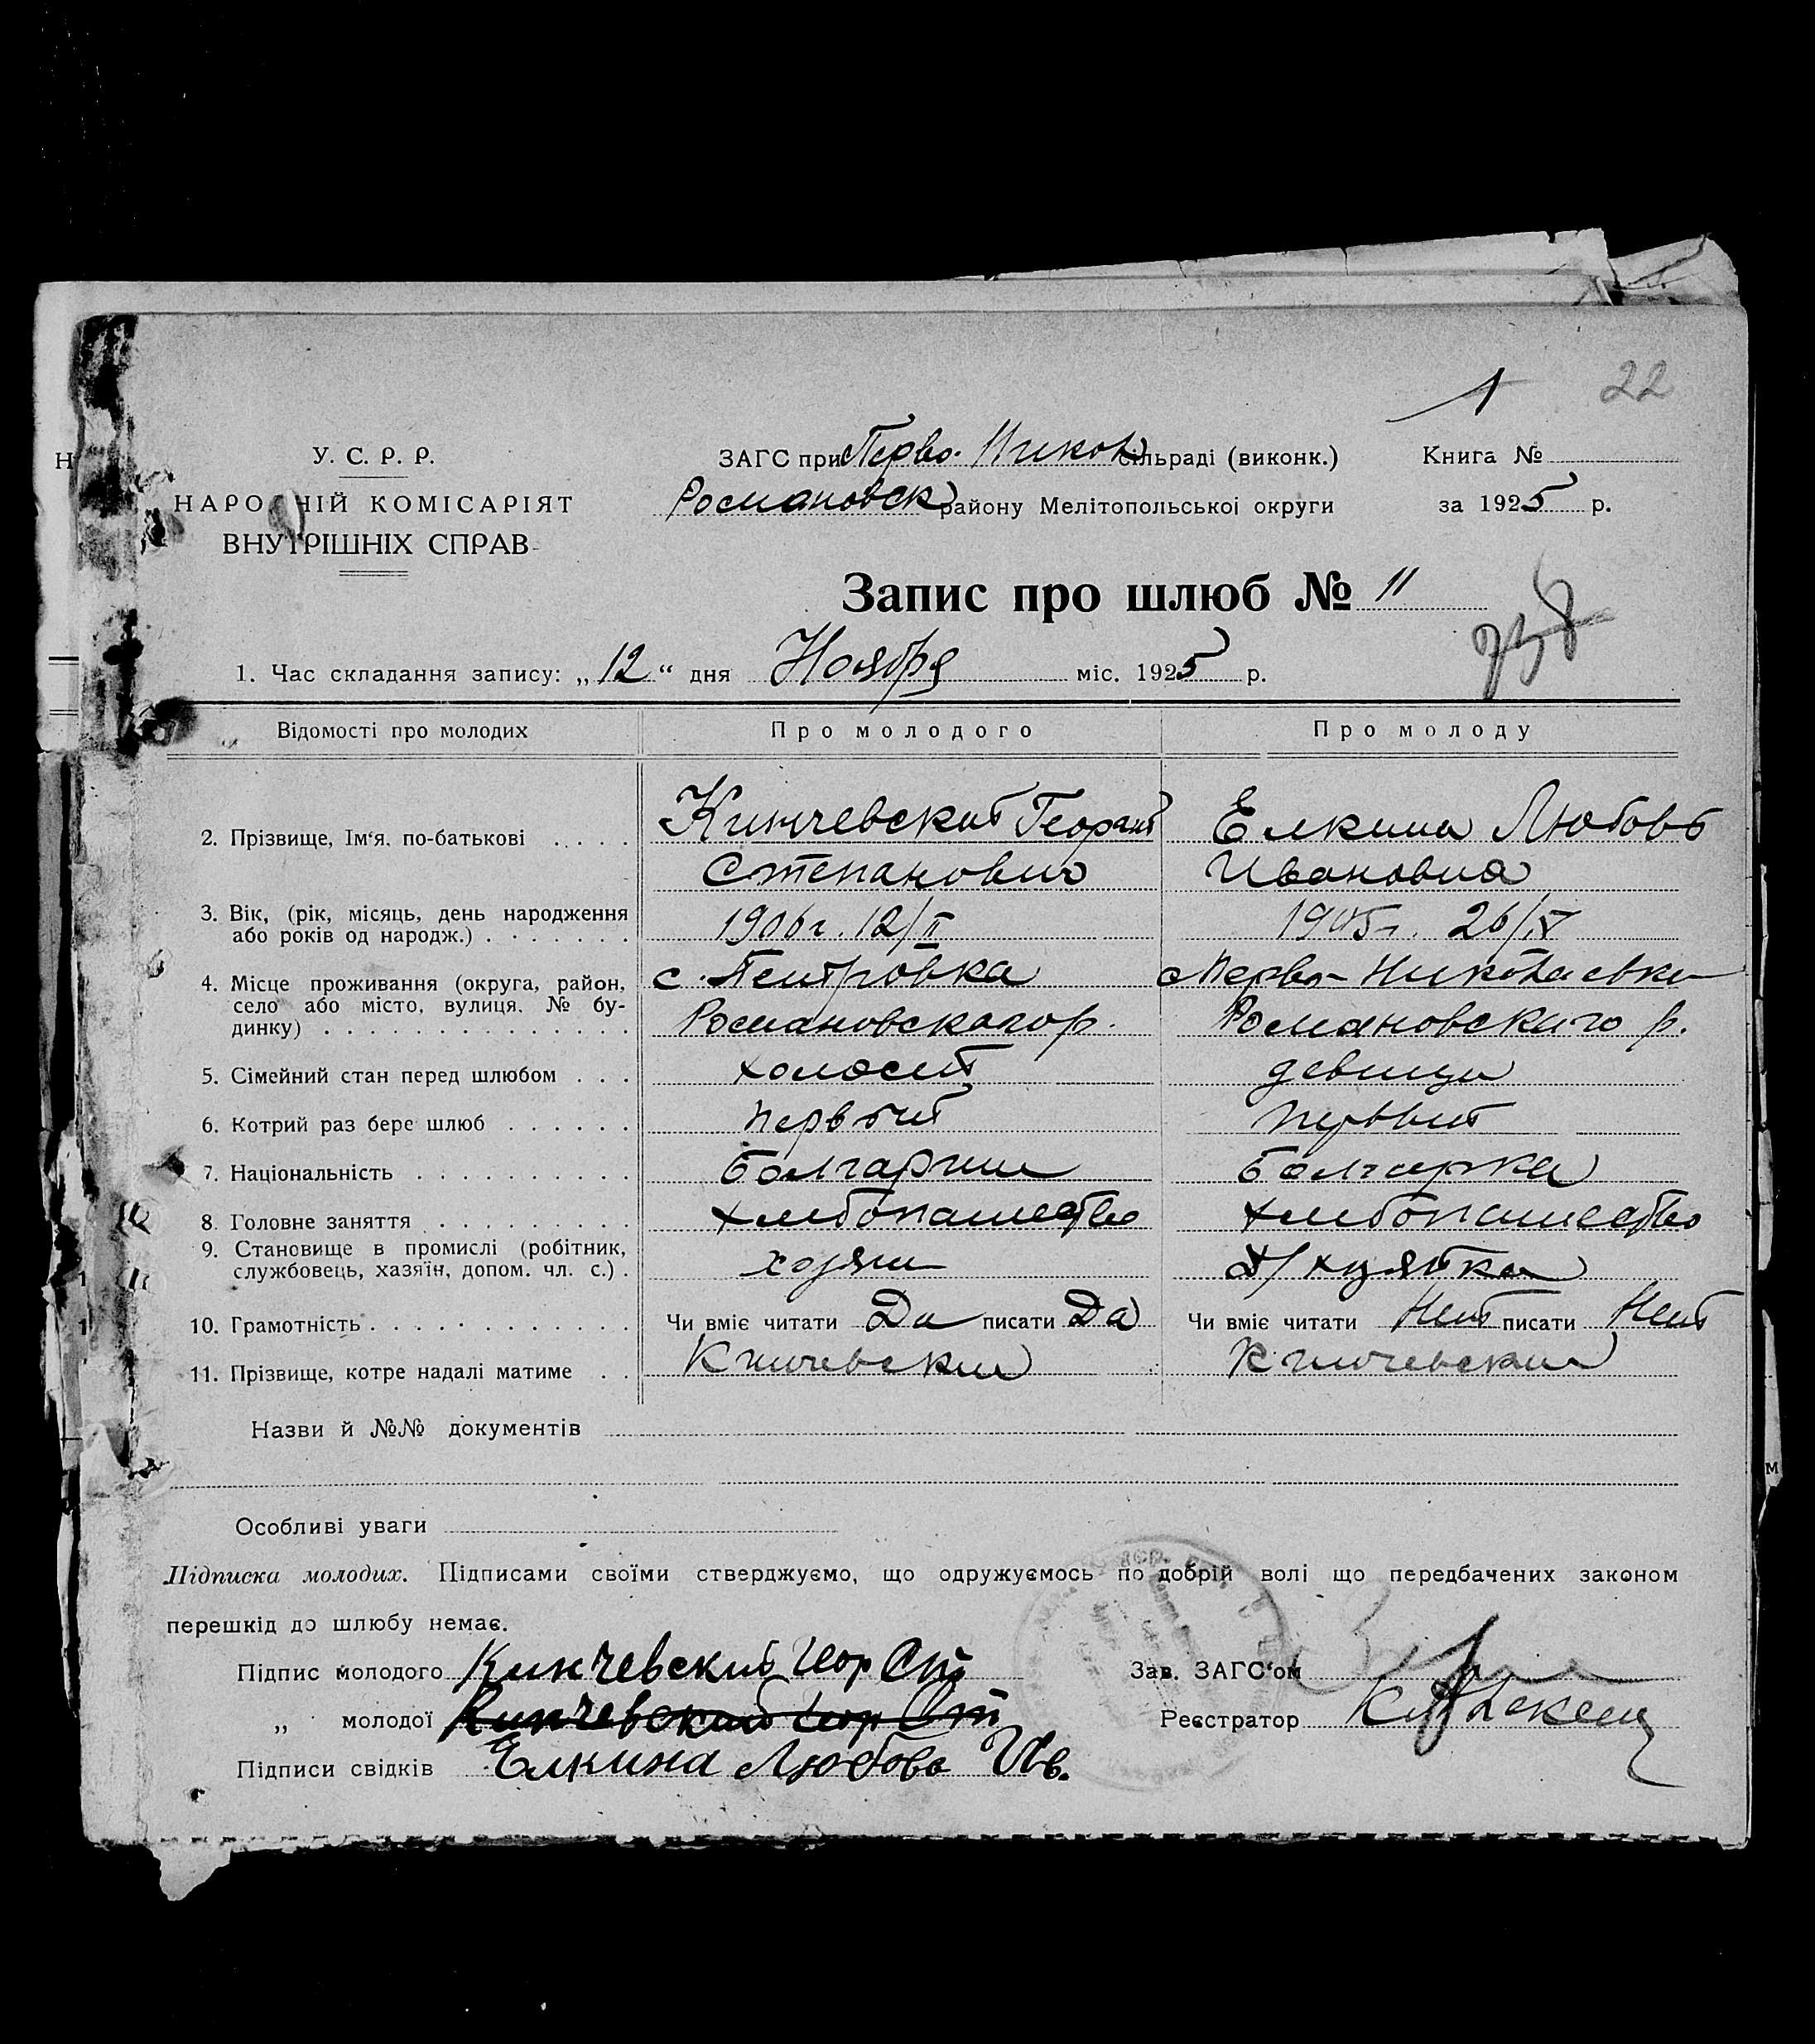 1 22
У. С. Р. Р.
НАРОДНІЙ КОМІСАРІЯТ
ВНУТРІШНІХ СПРАВ
ЗАГС при Перво-Никол сільраді (виконк.) Книга №
Романовск району Мелітопольської округи за 1925 р.
Запис про шлюб № 11
1. Час складання запису: „12“ дня Ноября міс. 1925 р.
Відомості про молодих Про молодого Про молоду
2. Прізвище, Ім'я, по-батькові . . . . Кинчевский Георгий Елкина Любовь
Степанович Ивановна
3. Вік, (рік, місяць, день народження
або років од народж.) . . . . . . . 1906 г. 12/II 1905 г. 26/IV
4. Місце проживання (округа, район, с. Петровка с Перво-Николаевка
село або місто, вулиця, № бу-
динку) . . . . . . . . . . . . . . Романовского р. Романовского р.
5. Сімейний стан перед шлюбом . . . холост девица
6. Котрий раз бере шлюб . . . . . . первый первый
7. Національність . . . . . . . . . . Болгарин Болгарка
8. Головне заняття . . . . . . . . . хлебопашество хлебопашество
9. Становище в промислі (робітник,
службовець, хазяїн, допом. чл. с.) . хозяин д/хозяйка
10. Грамотність . . . . . . . . . . . . Чи вміє читати Да писати Да Чи вміє читати Нет писати Нет
11. Прізвище, котре надалі матиме . . Кинчевский Кинчевская
Назви й №№ документів
Особливі уваги
Підписка молодих. Підписами своїми стверджуємо, що одружуємось по добрій волі що передбачених законом
перешкід до шлюбу немає.
Підпис молодого Кинчевский Геор Ст Зав. ЗАГС'ом
„ молодої Кинчевский Геор Ст Реєстратор
Підписи свідків Елкина Любовь Ив.